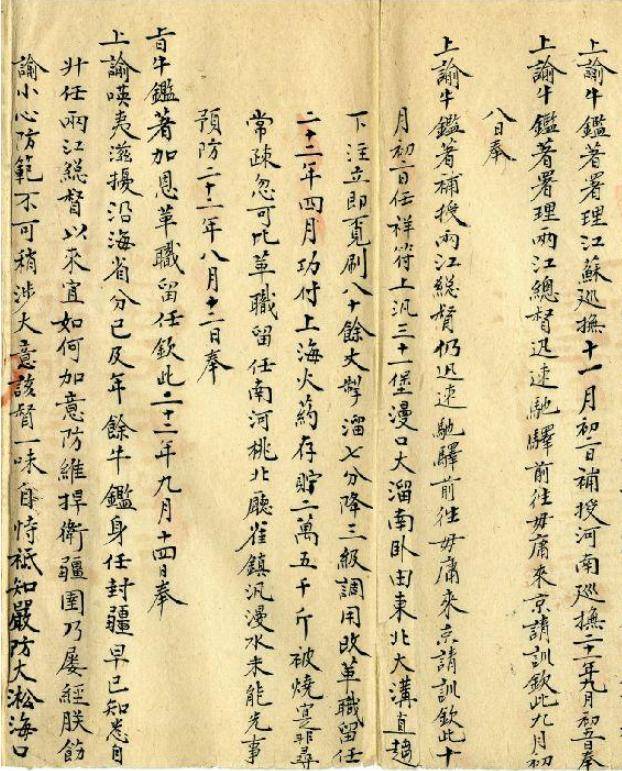 上諭牛鑑著署理江蘇巡撫十一月初一日補授河南巡撫二十一年九月初五日奉
上諭牛鑑著署理兩江總督迅速馳驛前往毋庸來京請訓欽此九月初
八日奉
上諭牛鑑著補授兩江総督仍迅速馳驛前往毋庸來京請訓欽此十
月初一日任祥符上汛三十一堡漫口大溜南臥由東北大溝直趨
下注立即寬刷八十餘丈掣溜七分降三級調用改革職留任
二十二年四月功付上海火葯存貯二萬五千斤被燒寔非尋
常疎忽可比革職留任南河桃北廳崔鎮汛漫水未能先事
預防二十二年八月十二日奉
上旨牛鑑著加恩革職留任欽此二十二年九月十四日奉
上諭㗸夷滋擾沿海省分已及年餘牛鑑身任封疆早已知悉自
升任兩江総督以來宜如何加意防維捍衛疆圉乃屡經朕飭
諭小心防範不可稍涉大意該督一味自恃祗知嚴防大淞海口